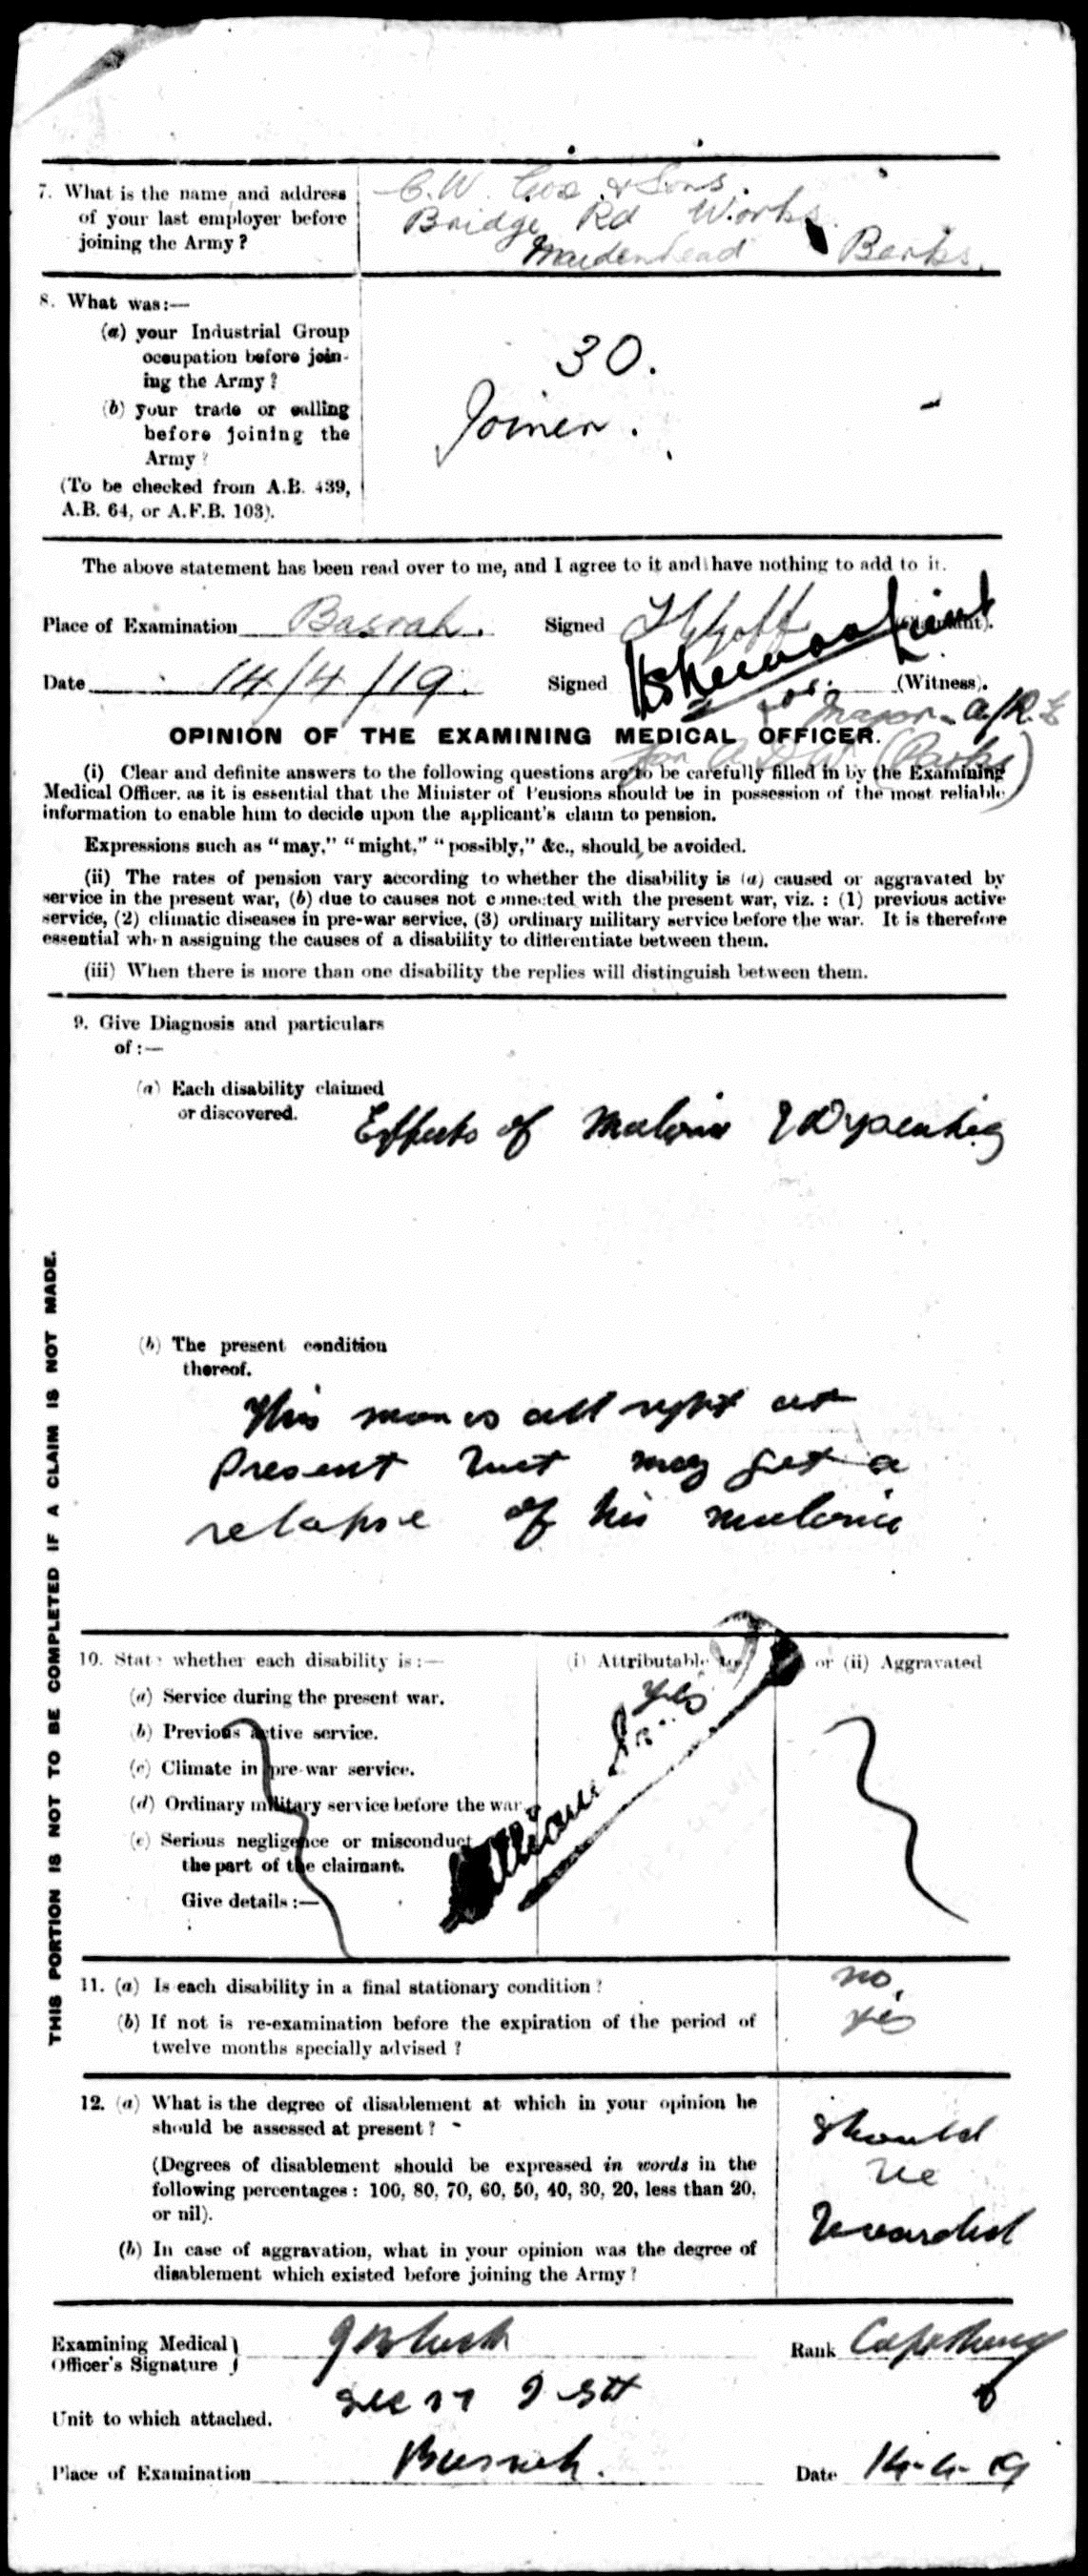 7. What is the name and address
of your last employer before
joining the Army?
C.W. Cox & Sons.
Bridge Rd Works
Maidenhead Berks.
8. What was:—
(a) your Industrial Group
occupation before join-
ing the Army?
30.
(b) your trade or calling
before joining the
Army?
Joiner.
(To be checked from A.B. 439,
A.B. 64, or A.F.B. 103).
The above statement has been read over to me, and I agree to it and have nothing to add to it.
Place of Examination Basrah. Signed (Claimant).
Date 14/4/19. Signed Lieut (Witness).
for Major a/R.E
OPINION OF THE EXAMINING MEDICAL OFFICER.
for (Works)
(i) Clear and definite answers to the following questions are to be carefully filled in by the Examining
Medical Officer, as it is essential that the Minister of Pensions should be in possession of the most reliable
information to enable him to decide upon the applicant's claim to pension.
Expressions such as "may," "might," "possibly," &c., should be avoided.
(ii) The rates of pension vary according to whether the disability is (a) caused or aggravated by
service in the present war, (b) due to causes not connected with the present war, viz. : (1) previous active
service, (2) climatic diseases in pre-war service, (3) ordinary military service before the war. It is therefore
essential when assigning the causes of a disability to differentiate between them.
(iii) When there is more than one disability the replies will distinguish between them.
9. Give Diagnosis and particulars
of :—
(a) Each disability claimed
or discovered.
Effects of Malaria & Dysentery
(b) The present condition
thereof.
This man is all right at
Present but may get a
relapse of his malaria
THIS PORTION IS NOT TO BE COMPLETED IF A CLAIM IS NOT MADE.
10. State whether each disability is :— (i) Attributable to or (ii) Aggravated
(a) Service during the present war. Yes
(b) Previous active service.
(c) Climate in pre-war service.
(d) Ordinary military service before the war
(e) Serious negligence or misconduct
the part of the claimant.
Give details :—
11. (a) Is each disability in a final stationary condition? no
(b) If not is re-examination before the expiration of the period of
twelve months specially advised? yes
12. (a) What is the degree of disablement at which in your opinion he
should be assessed at present?
(Degrees of disablement should be expressed in words in the
following percentages : 100, 80, 70, 60, 50, 40, 30, 20, less than 20,
or nil).
(b) In case of aggravation, what in your opinion was the degree of
disablement which existed before joining the Army?
Should
be
boarded
Examining Medical
Officer's Signature Rank
Unit to which attached.
Place of Examination Busrah. Date 14-4-19